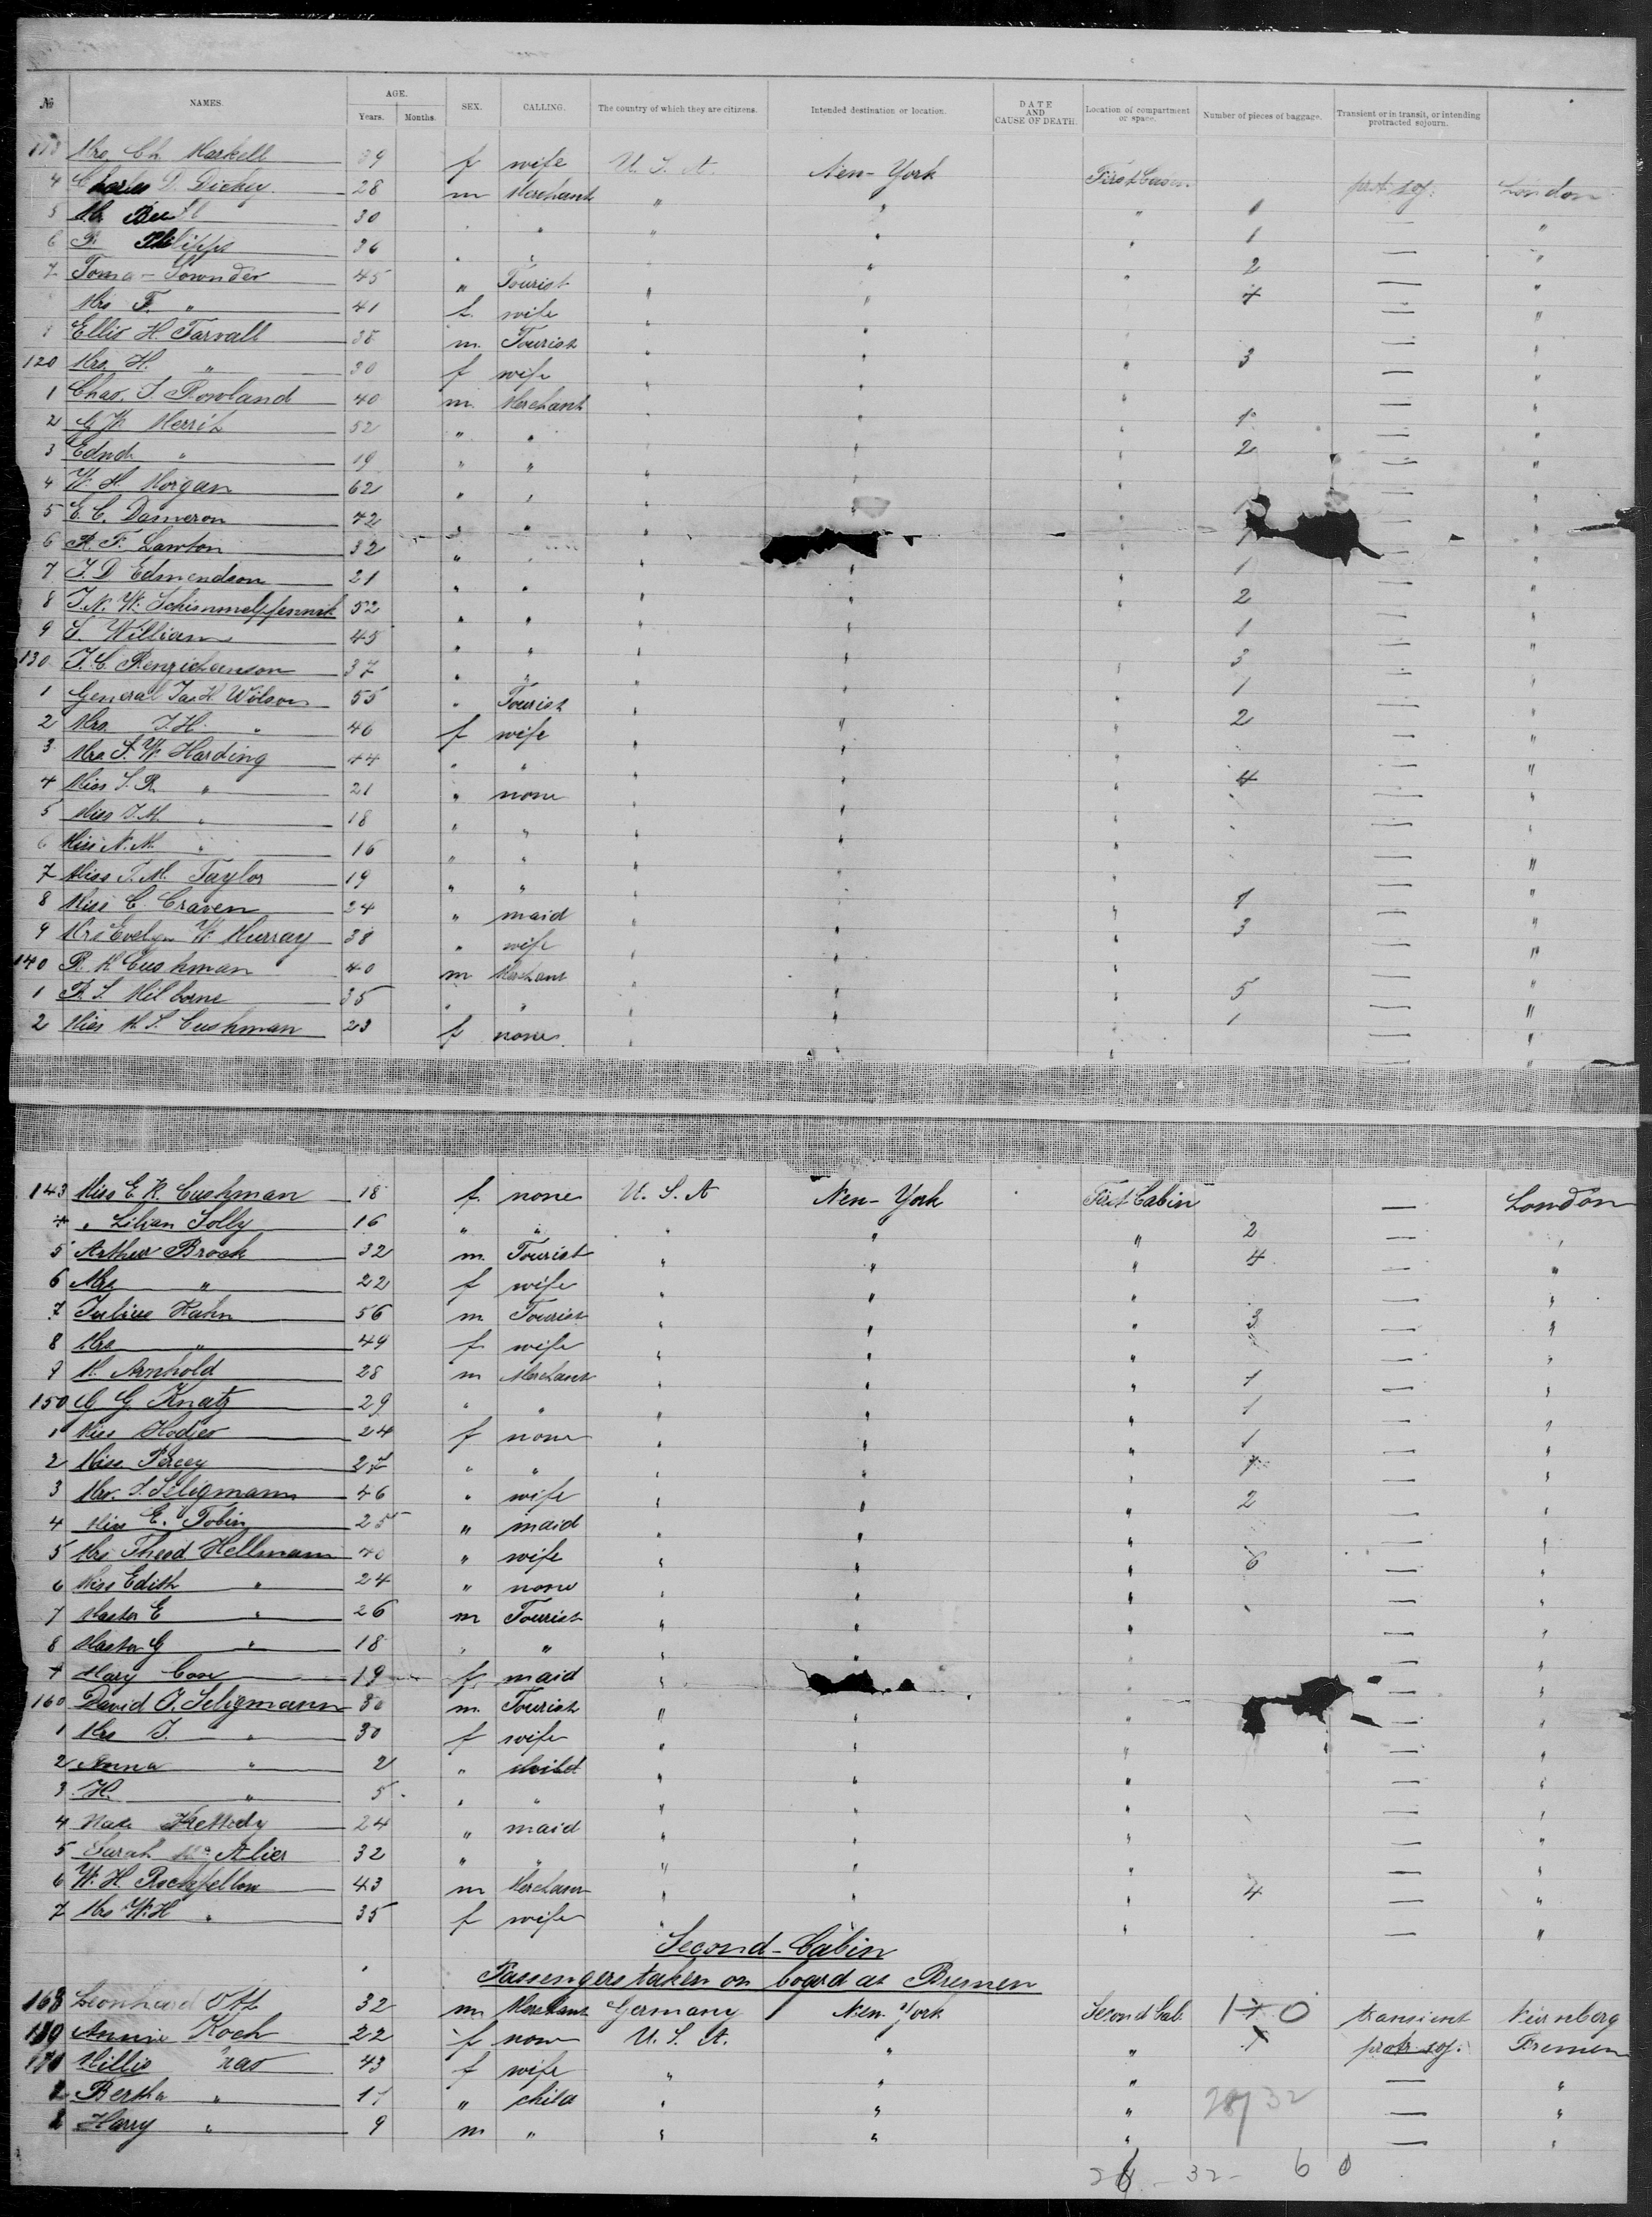 № NAMES. AGE. Years. Months. SEX. CALLING. The country of which they are citizens. Intended destination or location. DATE AND CAUSE OF DEATH. Location of compartment or space. Number of pieces of baggage. Transient or in transit, or intending protracted sojourn.
Mrs. Ch. Markell 39 f wife U. S. A. New-York First Cabin prot. soj. London
4 Charles D. Dickey 28 m Merchant " " " 1 — "
5 30 " " " 1 — "
6 R Philipps 36 " " " 2 — "
7 45 " Tourist " " 4 — "
Mrs F. " 41 f. wife " " — "
Ellis H. Tarvall 38 m. Tourist " " " 3 — "
120 Mrs. H. " 30 f wife " " " — "
1 Chas. T. Rowland 40 m. Merchant " " 1 — "
2 G W Merrit 52 " " " " 2 — "
3 Ednd " 19 " " " " — "
4 W. H. Morgan 62 " " " " — "
5 E. C. Dameron 42 " " " "
6 R. F. Lawton 32 " " " 1 — "
7 J. D Edmendson 21 " " " " 2 — "
8 J. N. W. Schimmelpfennik 52 " " " " 1 — "
9 S. William 45 " " " " 3 — "
130 J. C. 37 " " " " 1 — "
1 General Jas H Wilson 55 " Tourist " " 2 — "
2 Mrs. J. H. " 46 f wife " " — "
3 Mrs. S. W. Harding 44 " " " " 4 — "
4 Miss S. R. " 21 " none " " — "
5 Miss J. M. " 18 " " " " — "
6 Miss N. M. " 16 " " " " — "
7 Miss T. M. Taylor 19 " " " " 1 — "
8 Miss C. Craven 24 " maid " " 3 — "
9 Mrs Evelyn W. Murray 38 " wife " " — "
140 R. H. Cushman 40 m Merchant " " 5 — "
1 R. S. Milborne 35 " " " " 1 — "
2 Miss M. S. Cushman 23 f none " " — "
143 Miss E. R. Cushman 18 f. none U. S. A New-York First Cabin — London
4 " Lilian Solly 16 " " " " " 2 — "
5 Arthur Brock 32 m. Tourist " " " 4 — "
6 Mrs " 22 f wife " " " — "
7 Julius Kahn 56 m Tourist " " " 3 — "
8 Mrs " 49 f wife " " " — "
9 M. Arnhold 28 m Merchant " " " 1 — "
150 G. G. Knatz 29 " " " " " 1 — "
1 Miss Hodges 24 f none " " " 1 — "
2 Miss Percey 27 " " " " " 1 — "
3 Mrs. J. Seligmann 46 " wife " " " 2 — "
4 Miss E. Tobin 25 " maid " " " — "
5 Mrs Theod Hellmann 40 " wife " " " 6 — "
6 Miss Edith " 24 " none " " " — "
7 Master E " 26 m Tourist " " " — "
8 Master G " 18 " " " " " — "
9 Mary 19 f. maid " " — "
160 David J. Seligmann 30 m. Tourist " " " — "
1 Mrs J. " 30 f wife " " " — "
2 Anna " 2 " child " " " — "
3 H. " 5 " " " " " — "
4 24 " maid " " " — "
5 Sarah Mc Alier 32 " " " " " — "
6 W. H. 43 m Merchant " " " 4 — "
7 Mrs W. H " 35 f wife " " " "
Second-Cabin
Passengers taken on board at Bremen
168 Leonhard Ott 32 m Merchant Germany New York Second Cab. transient Nürnberg
169 Annie Koch 22 f none U. S. A. " " prot. soj. Bremen
170 Millie 43 f wife " " " — "
Bertha " " child " " " — "
2 Harry " 9 m " " " " — "
32 6